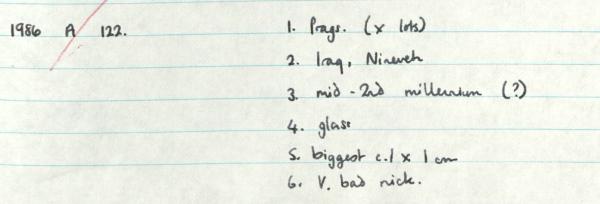 1986 A 122. 1. Frags. (x lots)
2. Iraq, Nineveh
3. mid-2nd millennium (?)
4. glass
5. biggest c.1 x 1 cm
6. V. bad nick.